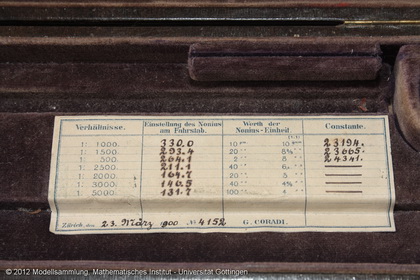 Verhältnisse. Einstellung des Nonius am Fahrstab. Werth der Nonius-Einheit Constante.
1: 1000. 330.0 10 10 23194.
1: 1500. 293.4 20 8¾ 23665.
1: 500. 264.1 2 8 24341.
1: 2500. 211.1 40 6
1: 2000. 164.7 20 5
1: 3000. 146.5 40 4¾
1: 5000. 131.7 100 4
Zürich, den 23. März 1900 № 4152 G. CORADI.
© 2012 Modellsammlung, Mathematisches Institut - Universität Göttingen